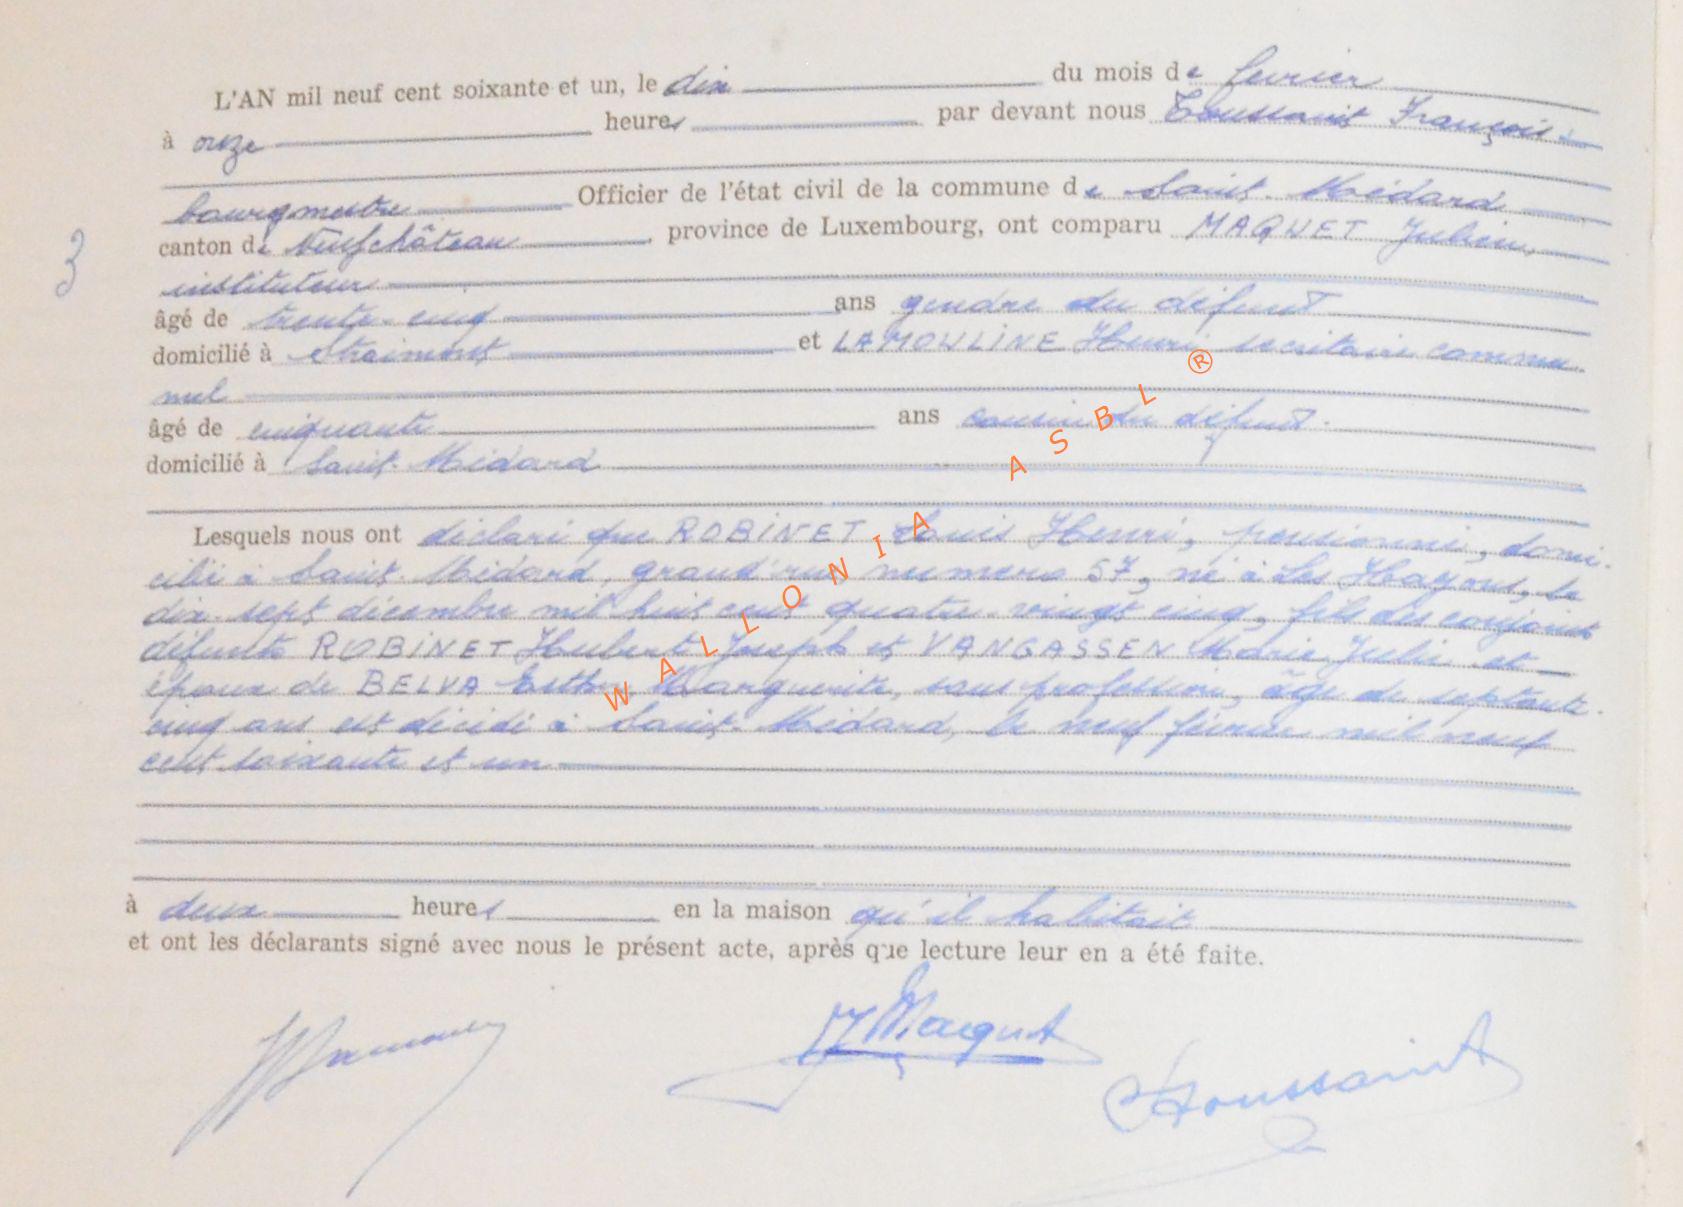 L'AN mil neuf cent soixante et un, le dix du mois de février
à onze heures par devant nous Toussaint François
bourgmestre Officier de l'état civil de la commune de Saint-Médard
canton de Neufchâteau, province de Luxembourg, ont comparu MAQUET Julien,
3
instituteur
âgé de trente-cinq ans gendre du défunt
domicilié à Straimont et LAMOULINE Henri secrétaire commu-
nal
âgé de cinquante ans cousin du défunt.
domicilié à Saint-Médard
Lesquels nous ont déclaré que ROBINET Louis Henri, pensionné, domi-
cilié à Saint-Médard, grand'rue numéro 57, né à Les Hayons, le
dix-sept décembre mil huit cent quatre-vingt cinq, fils des conjoints
défunts ROBINET Hubert Joseph et VANGASSEN Marie Julie et
époux de BELVA Esther Marguerite, sans profession, âgé de septante-
cinq ans est décédé à Saint-Médard, le neuf février mil neuf
cent soixante et un
à deux heures en la maison qu'il habitait
et ont les déclarants signé avec nous le présent acte, après que lecture leur en a été faite.
J Maquet
Toussaint
WALLONIA ASBL ®